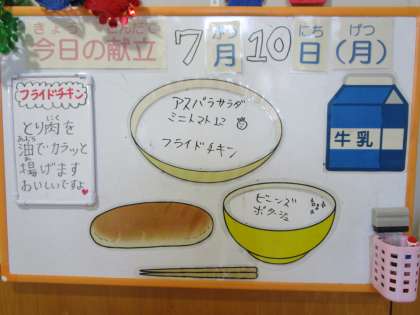 きょう こんだて
今日の献立 7月10日(月)
がつ にち げつ
フライドチキン
とり肉を
にく
油でカラッと
あぶら
揚げます
あ
おいしいですよ
アスパラサラダ
ミニトマト12
フライドチキン
牛乳
ビーンズ
ポタージュ